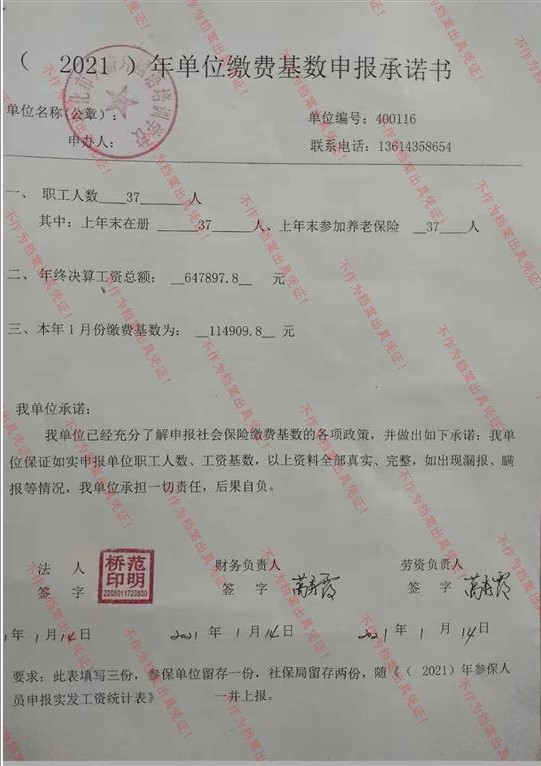 （ 2021 ）年单位缴费基数申报承诺书
单位名称(公章）： 单位编号：400116
申办人： 联系电话：13614358654
一、 职工人数____37______人
其中：上年末在册 _____37____人、上年末参加养老保险 __37___人
二、 年终决算工资总额： __647897.8__ 元
三、本年 1 月份缴费基数为： __114909.8__ 元
我单位承诺：
我单位已经充分了解申报社会保险缴费基数的各项政策，并做出如下承诺：我单
位保证如实申报单位职工人数、工资基数，以上资料全部真实、完整，如出现漏报、瞒
报等情况，我单位承担一切责任，后果自负。
法 人 财务负责人 劳资负责人
签 字 签 字 签 字
桥范
印明
2205911720830
年 1 月 14 日 2021 年 1 月 14 日 2021 年 1 月 14 日
要求：此表填写三份，参保单位留存一份，社保局留存两份，随《（ 2021）年参保人
员申报实发工资统计表》 一并上报。
不作为档案出具凭证！